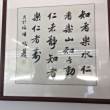 知者樂水仁
者樂山知者動
仁者靜知者
樂仁者壽